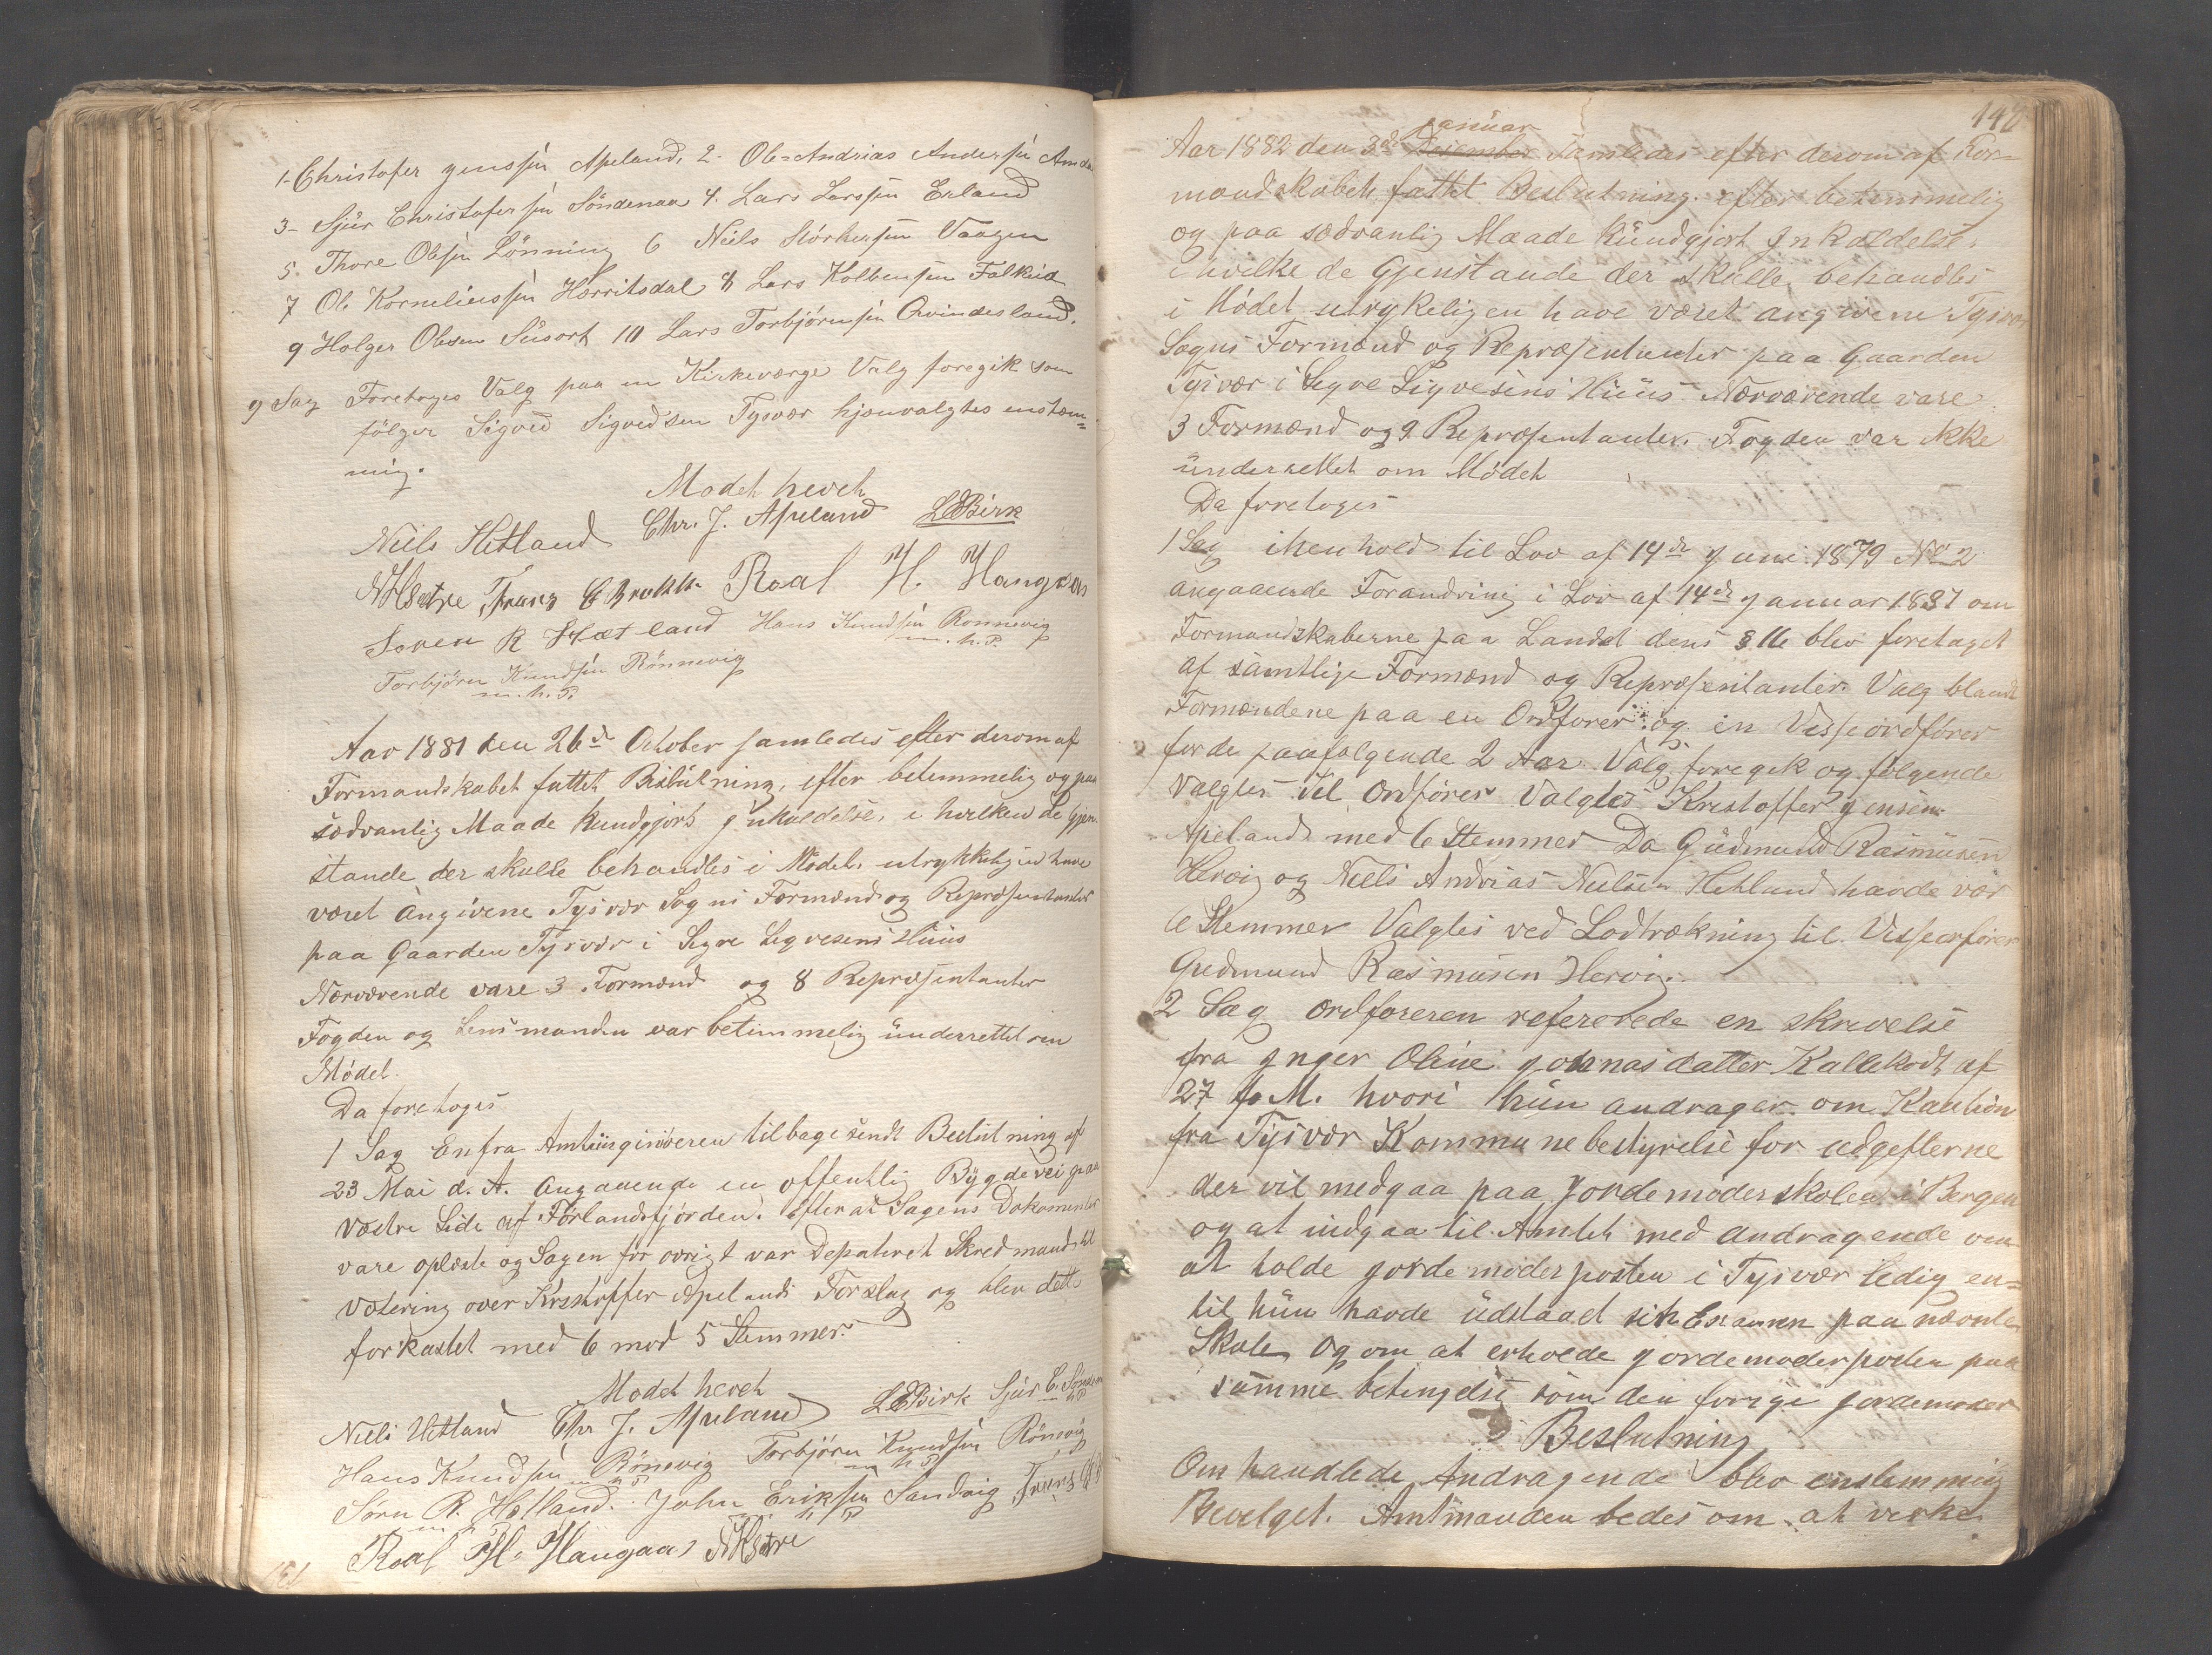 1- Christofer Jenssen Apeland, 2- Ole Andrias Andersen Amda
3- Sjur Christofersen Söndenaa 4. Lars Larssen Erland
5. Thore Olsen Lönning 6 Niels Störkersen Vaagen
7 Ole Korneliussen Hærvitsdal 8 Lars Kolbensen Falkeid
9 Holger Olesen Süsort 10 Lars Torbjörnsen Qvindesland.
9 Sag Foretoges Valg paa en Kirkeværge Valg foregik som
fölger Sigved Sigvedsen Tysvær hjenvalgtes enstem=
mig.
Modet hevet
Niels Hetland Chr. J. Apeland LOBirk
NHSætre, Frans Roal H. Haugaas
Soren R Hætland Hans Knudsen Ronnevig
m. h. P.
Torbjörn Knudsen Rönnevig
m. h. P.
Aar 1881 den 26de October samledes efter derom af
Formandskabet fattet Beslutning, efter betimmelig og paa
sædvanlig Maade kundgjort Inkaldelse, i hvilken de Gjen-
stande der skulle behandles i Mödet, utrykkeligen have
været angivene Tysvær Sogns Formænd og Repræsentanter
paa Gaarden Tysvær i Sigve Sigvesens Hüüs
Nærværende vare 3 Formænd og 8 Repræsentanter
Fogden og Lensmanden var betimmelig ünderrettet om
Mödet.
Da foretoges
1 Sag En fra Amtüs tilbagesendt Beslutning af
23 Mai d. A. Angaaende en offentlig Bygdevei paa
Vestre Side af Förlandsfjorden. Efterat Sagens Dokumenter
vare oplæste og Sagen for övrigt var Depateret Skred mand til
Votering over Kristoffer Apelands Forslag og blev dette
forkastet med 6 mod 5 Stemmer.
Modet hevet
Niels Hetland Chr J. Apeland LOBirk Sjur C. Sönden
Hans Knudsen Rönevig Torbjörn Knudsen Rönevig
Sörn R. Hetland. John Eriksen Sandvig Frans
Roal H. Haugaas NHSætre
148
Januar
Aar 1882 den 3de Desember Samledes efter derom af For=
mandskabet fattet Beslutning. efter betimmelig
og paa sædvanlig Maade kündgjort Inkaldelse,
i hvilke de Gjenstande der skulle behandles
i Mödet utrykeligen have været angivene Tysvær
Sogns Formænd og Repræsentanter paa Gaarden
Tysvær i Sigve Sigvesens Hüüs Nærværende vare
3 Formænd og 9 Repræsentanter. Fogden var ikke
ünderrettet om Mödet
Da foretoges
1 Sag i henhold til Lov af 14de Juni 1879 No 2
angaaende Forandring i Lov af 14de Januar 1837 om
Formandskaberne paa Landet dens § 16 blev foretaget
af samtlige Formænd og Repræsentanter. Valg blandt
Formændene paa en Ordforer og en Visseordförer
for de paafolgende 2 Aar. Valg foregik og folgende
Valgtes til Ordförer Valgtes Kristoffer Jensen
Apeland med 6 Stemmer Da Güdmund Rasmüsen
Hervig og Niels Andrias Nielsen Hetland havde vær
6 Stemmer Valgtes ved Lodtrækning til Visseorförer
Gudmund Rasmusen Hervig.
2 Sag Ordforeren refererede en skrivelse
fra Inger Oline Johnasdatter Kallekodt af
27 f. M. hvori hün andrager om Kaution
fra Tysvær Kommunebestyrelse for udgefterne
der vil medgaa paa Jordemoderskolen i Bergen
og at indgaa til Amtet med Andragende om
at holde Jordemoderposten i Tysvær ledig en=
til hün havde üdstaaet sit Examen paa nævnte
Skole Og om at erholde Jordemoderposten paa
samme betingelse som den forrige Jordemoder
Beslutning
Omhandlede Andragende blev enstemmig
Bevelget. Amtmanden bedes om at virke